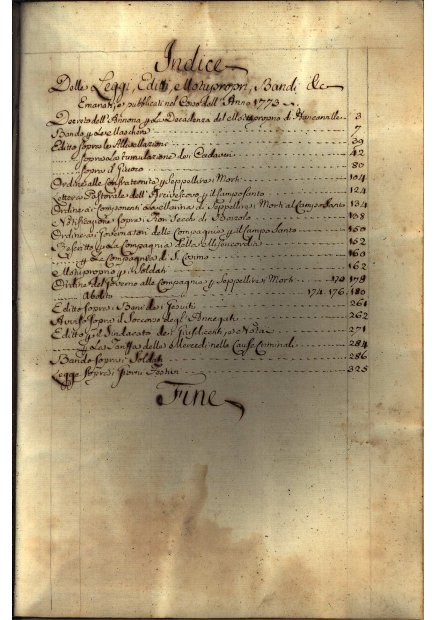 Indice
Delle Leggi, Editti, e Motupropri, Bandi &c
Emanati, e pubblicati nel Corso dell'Anno 1773
Decreto dell'Annona p la Decadenza del Motuproprio di 3
Bando p le Maschere 7
Editto sopra le Allivellazioni 39
sopra la tumulazione dei Cadaveri 42
sopra il Giuoco 80
Ordine alle Confraternite p Seppellire i Morti 104
Lettera Pastorale dell'Arcivescovo p il Campo Santo 124
Ordine ai Componenti la di Seppellire i Morti al Campo Santo 134
Notificazione sopra i Fior Secchi di 108
Ordine ai Governatori delle Compagnie p il Campo Santo 150
Rescritto p La Compagnia della Misericordia 152
p La Compagnia di S. Cosimo 160
Motuproprio p i Soldati 162
Ordine del Governo alle Compagnie p Seppellire i Morti 170 178
174. 176. 180
Editto sopra i Beni dei Gesuiti 261
Avviso sopra il Soccorso degl'Annegati 262
Editto p il Sindacato dei Giusdicenti, e 271
p La Tariffa delle Mercedi nelle Cause Criminali 284
Bando sopra i Soldati 286
Legge sopra i 325
Fine